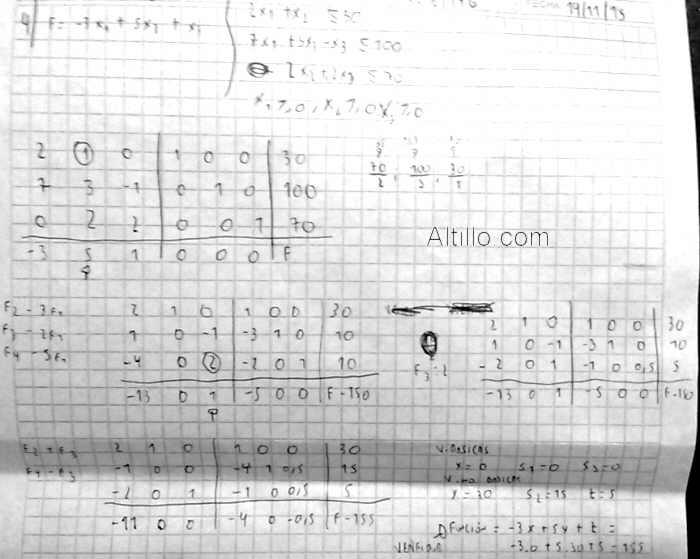 4) F = -3x1 + 5x2 + x3
2x1 + x2 ≤ 30
7x1 + 3x2 - x3 ≤ 100
2x2 + 2x3 ≤ 70
19/11/13
2 1 0 | 1 0 0 | 30
7 3 -1 | 0 1 0 | 100
0 2 2 | 0 0 1 | 70
-3 5 1 | 0 0 0 | F
70/2, 100/3, 30/1
Altillo.com
F2 - 3F1
F3 - 2F1
F4 - 5F1
2 1 0 | 1 0 0 | 30
1 0 -1 | -3 1 0 | 10
-4 0 2 | -2 0 1 | 10
-13 0 1 | -5 0 0 | F-150
F3 ÷ 2
2 1 0 | 1 0 0 | 30
1 0 -1 | -3 1 0 | 10
-2 0 1 | -1 0 0,5 | 5
-13 0 1 | -5 0 0 | F-150
F2 + F3
F4 - F3
2 1 0 | 1 0 0 | 30
-1 0 0 | -4 1 0,5 | 15
-2 0 1 | -1 0 0,5 | 5
-11 0 0 | -4 0 -0,5 | F-155
V. BASICAS
x=0 S1=0 S3=0
V. no BASICAS
y=30 S2=15 t=5
Función = -3x + 5y + t =
VERIFICA -3.0 + 5.30 + 5 = 155